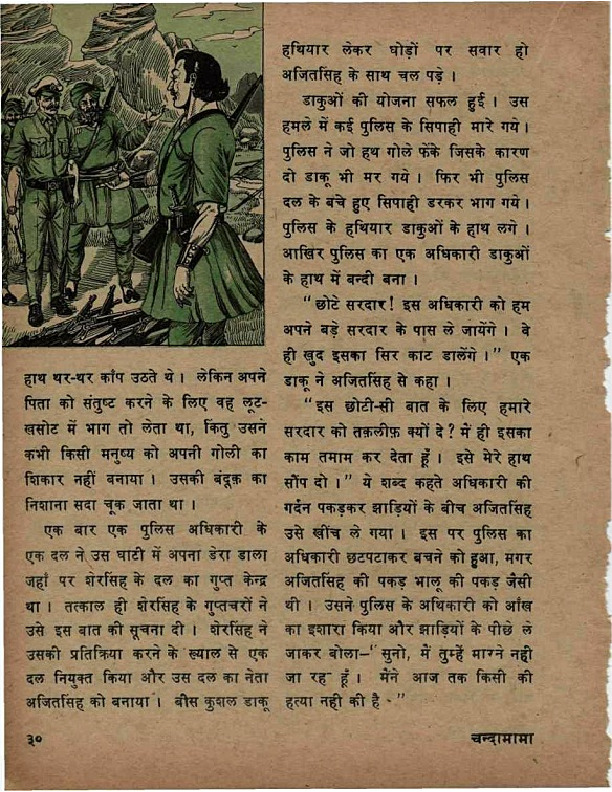 हाथ थर-थर काँप उठते थे । लेकिन अपने
पिता को संतुष्ट करने के लिए वह लूट-
खसोट में भाग तो लेता था, किंतु उसने
कभी किसी मनुष्य को अपनी गोली का
शिकार नहीं बनाया । उसकी बंदूक़ का
निशाना सदा चूक जाता था ।
एक बार एक पुलिस अधिकारी के
एक दल ने उस घाटी में अपना डेरा डाला
जहाँ पर शेरसिंह के दल का गुप्त केन्द्र
था । तत्काल ही शेरसिंह के गुप्तचरों ने
उसे इस बात की सूचना दी । शेरसिंह ने
उसकी प्रतिक्रिया करने के ख्याल से एक
दल नियुक्त किया और उस दल का नेता
अजितसिंह को बनाया । बीस कुशल डाकू
हथियार लेकर घोड़ों पर सवार हो
अजितसिंह के साथ चल पड़े ।
डाकुओं की योजना सफल हुई । उस
हमले में कई पुलिस के सिपाही मारे गये ।
पुलिस ने जो हथ गोले फेंके जिसके कारण
दो डाकू भी मर गये । फिर भी पुलिस
दल के बचे हुए सिपाही डरकर भाग गये ।
पुलिस के हथियार डाकुओं के हाथ लगे ।
आखिर पुलिस का एक अधिकारी डाकुओं
के हाथ में बन्दी बना ।
"छोटे सरदार! इस अधिकारी को हम
अपने बड़े सरदार के पास ले जायेंगे । वे
ही खुद इसका सिर काट डालेंगे ।" एक
डाकू ने अजितसिंह से कहा ।
"इस छोटी-सी बात के लिए हमारे
सरदार को तक़लीफ़ क्यों दे? में ही इसका
काम तमाम कर देता हूँ । इसे मेरे हाथ
सौंप दो ।" ये शब्द कहते अधिकारी की
गर्दन पकड़कर झाड़ियों के बीच अजितसिंह
उसे खींच ले गया । इस पर पुलिस का
अधिकारी छटपटाकर बचने को हुआ, मगर
अजितसिंह की पकड़ भालू की पकड़ जैसी
थी । उसने पुलिस के अधिकारी को आँख
का इशारा किया और झाड़ियों के पीछे ले
जाकर बोला–"सुनो, मैं तुम्हें मारने नही
जा रह हूँ । मैंने आज तक किसी की
हत्या नही की है ."
३०
चन्दामामा